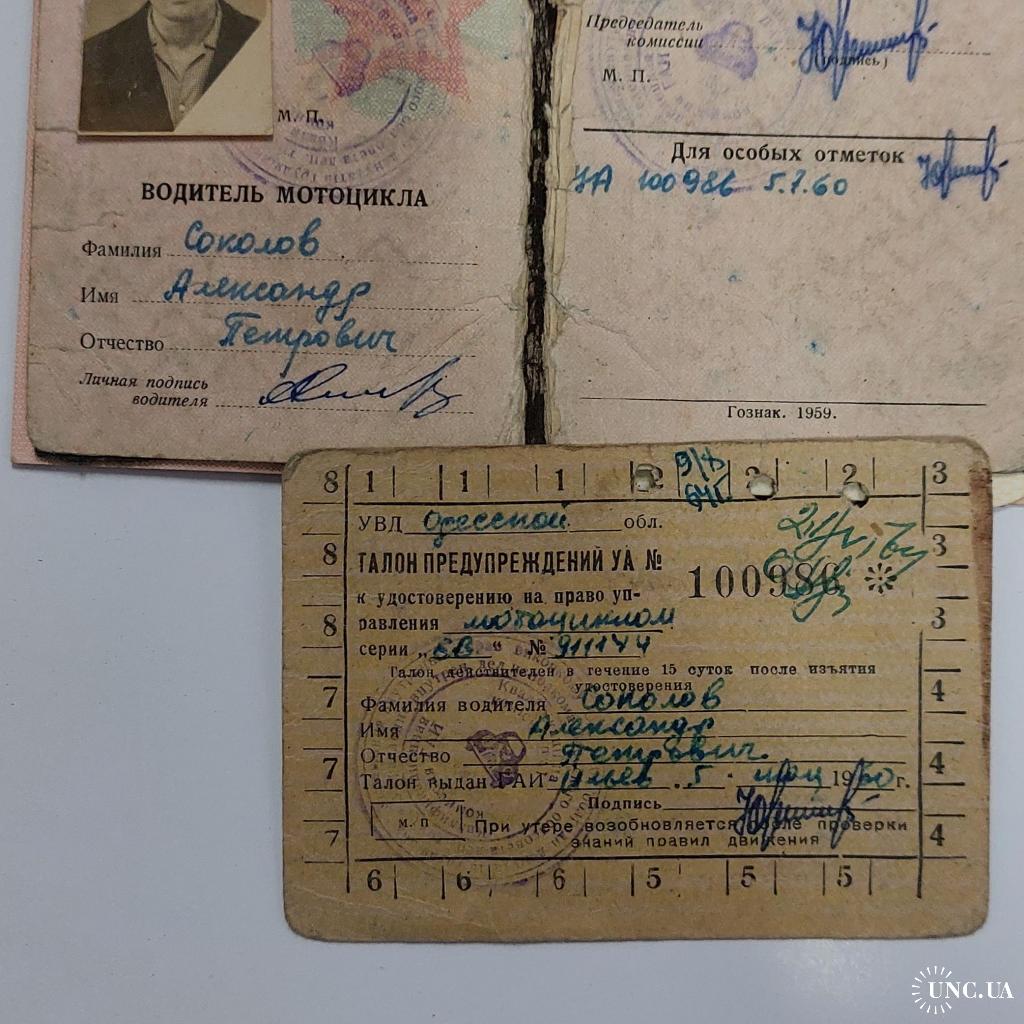 М. П.
ВОДИТЕЛЬ МОТОЦИКЛА
Фамилия Соколов
Имя Александр
Отчество Петрович
Личная подпись
водителя
Председатель
комиссии
(подпись)
М. П.
Для особых отметок
УА 100986 5.7.60
Гознак. 1959.
8 1 1 1 2 2 2 3
УВД Одесской обл.
8 3
ТАЛОН ПРЕДУПРЕЖДЕНИЙ УА № 100986
к удостоверению на право уп-
8 равления мотоциклом 3
серии „БВ“ № 911144
Талон действителен в течение 15 суток после изъятия
удостоверения
7 Фамилия водителя Соколов 4
Имя Александр
Отчество Петрович
7 Талон выдан ГАИ 5 1960 г. 4
Подпись
м. п При утере возобновляется после проверки
7 знаний правил движения 4
6 6 6 5 5 5
UNC.UA